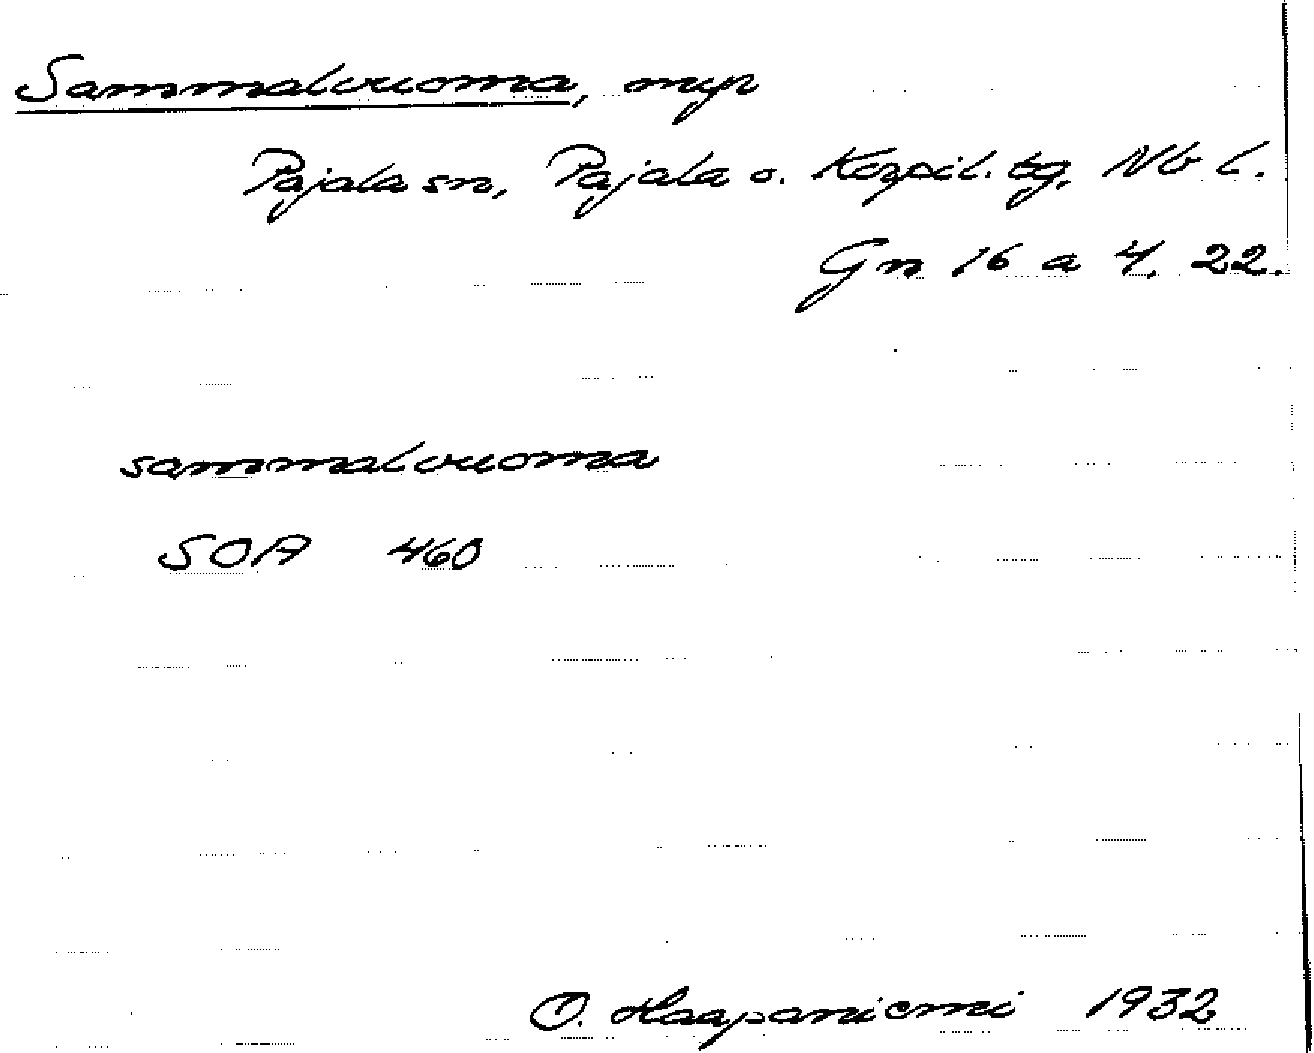 Sammalvuoma, myr
Pajala sn, Pajala o. Korpil. tg, Nb l.
Gn 16 a 4. 22.
sammalvuoma
SOA 460
O. Haapaniemi 1932